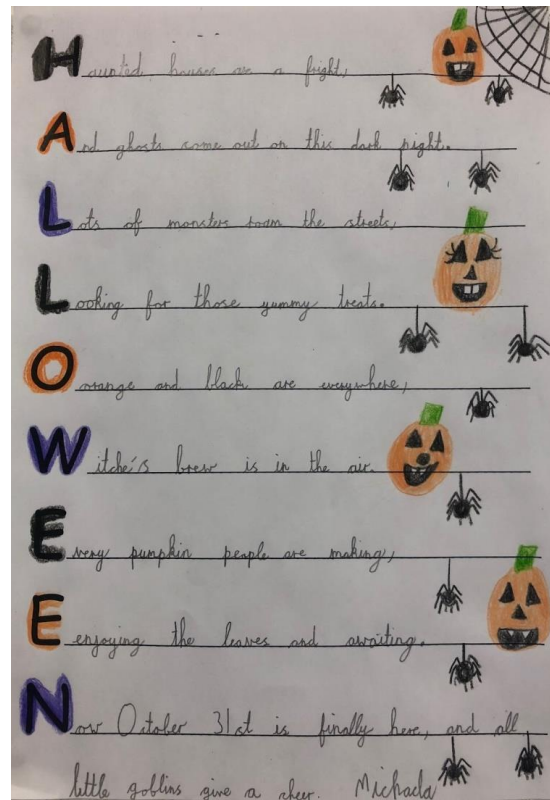 Haunted houses are a fright,
And ghosts come out on this dark night.
Lots of monsters roam the streets,
Looking for those yummy treats.
Oorange and black are everywhere,
Witche's brew is in the air.
Every pumpkin people are making,
Eenjoying the leaves and awaiting.
Now October 31st is finally here, and all
little goblins give a cheer. Michaela